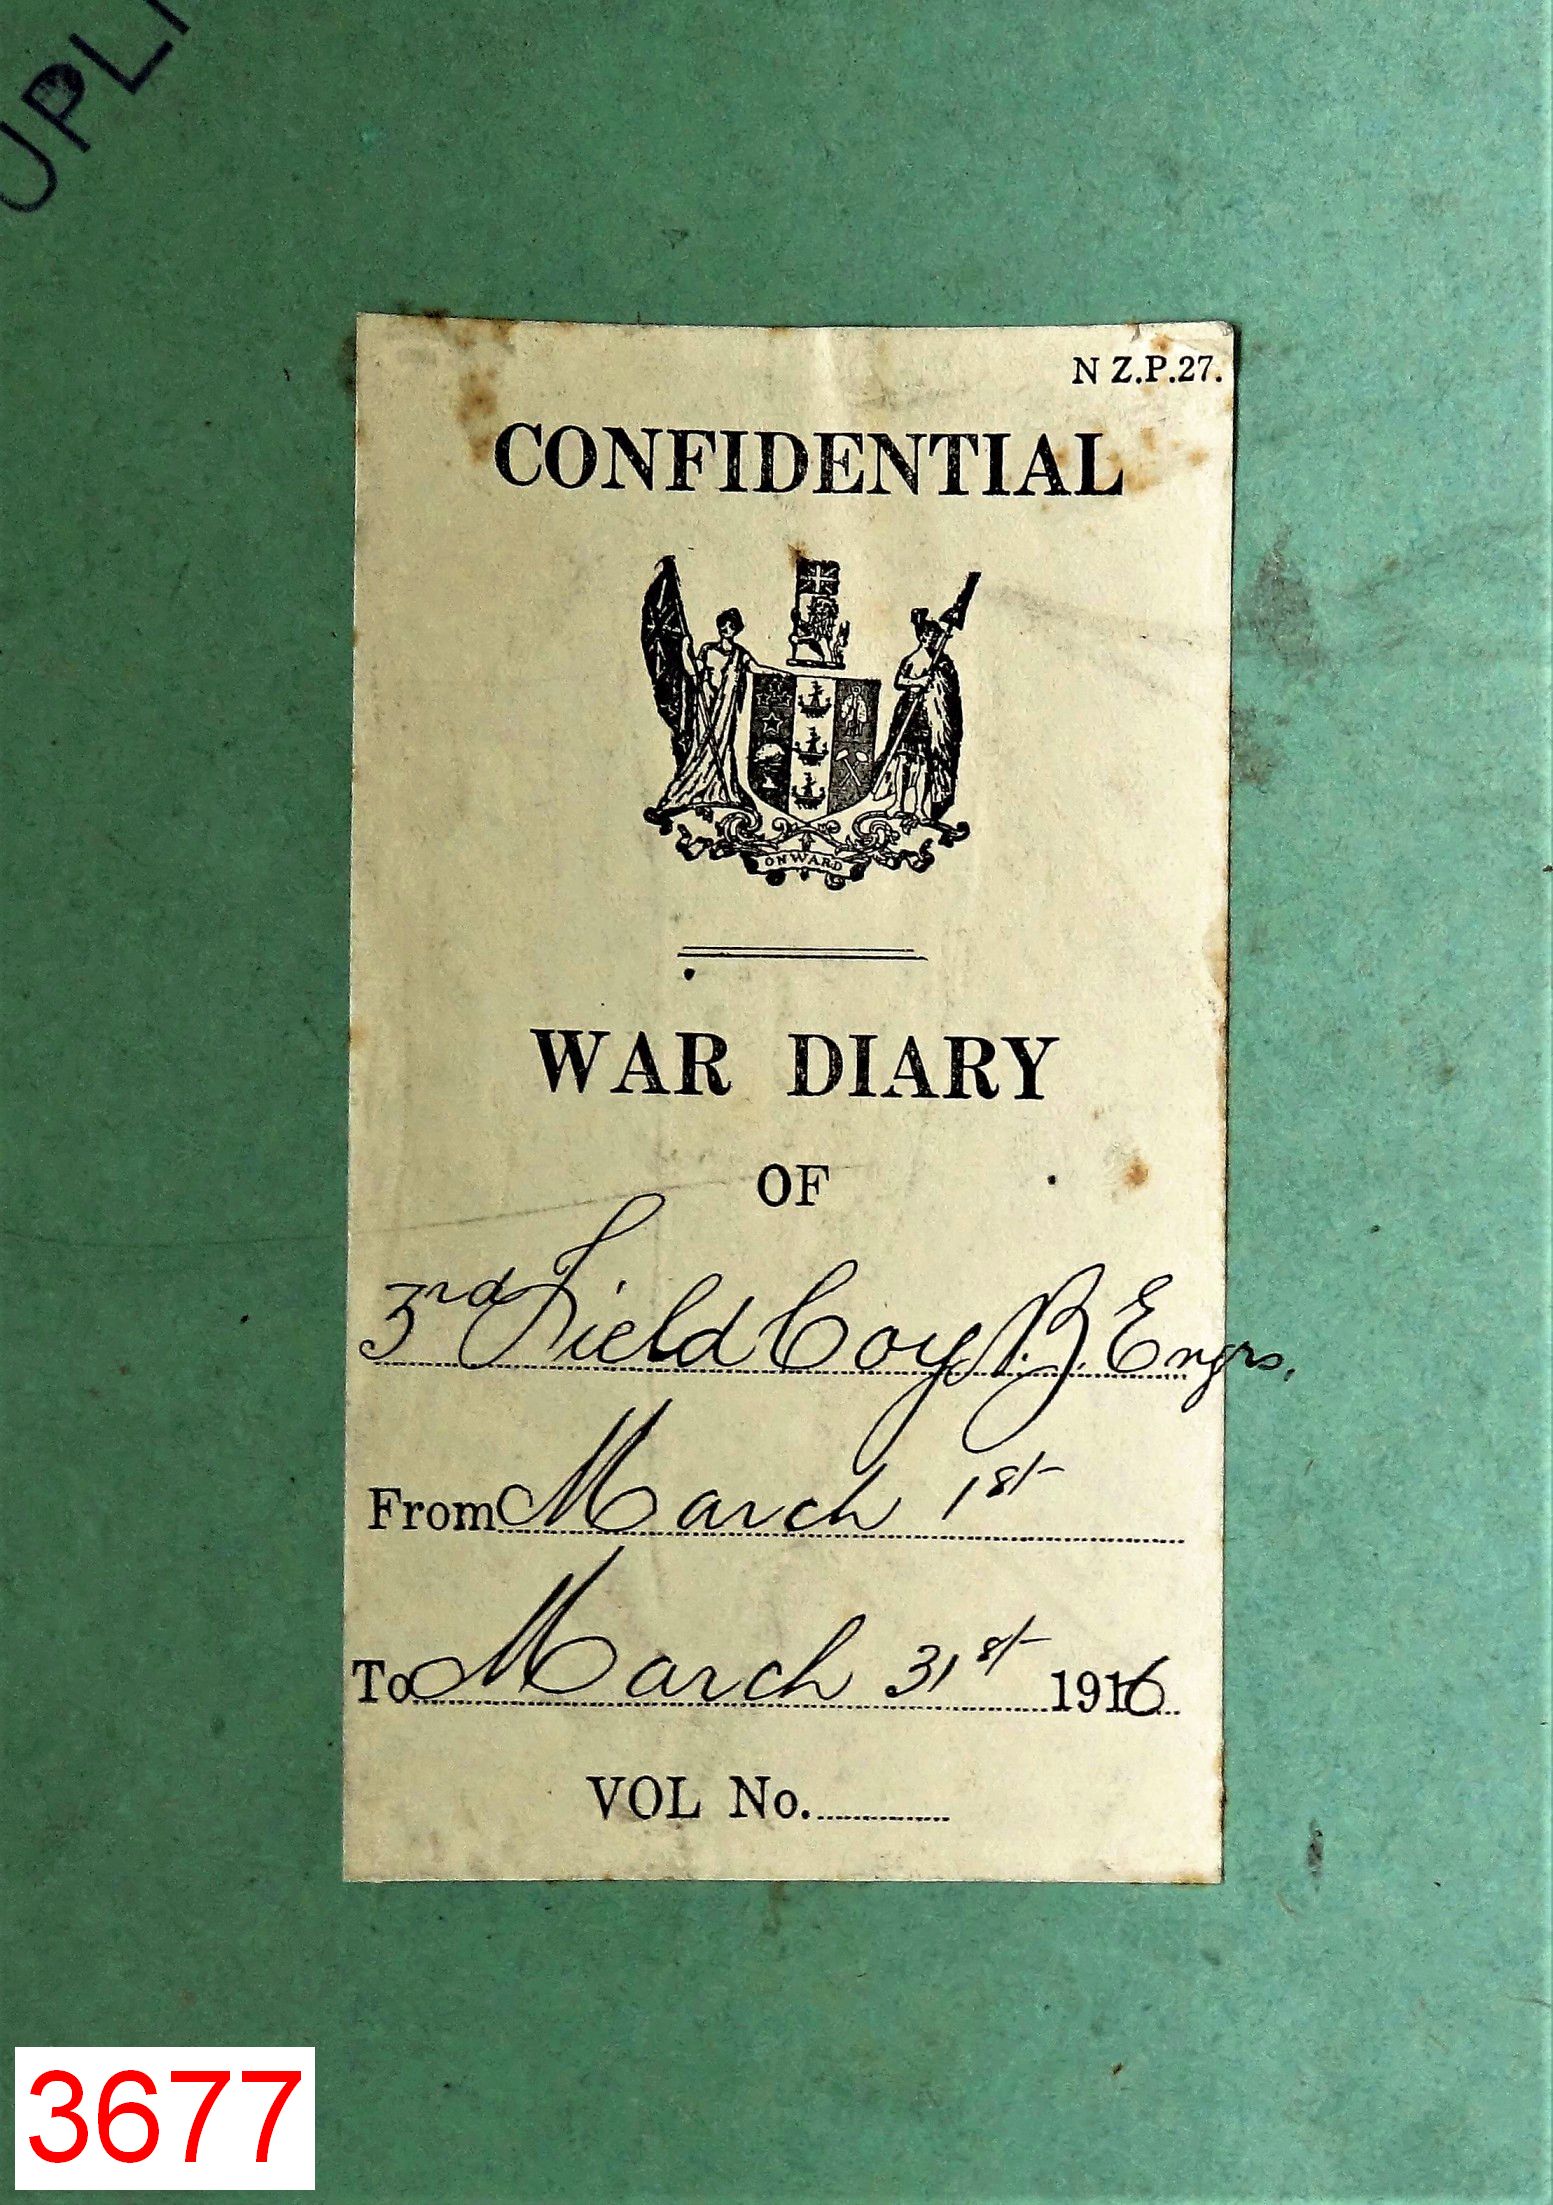 UPLI
N Z.P.27.
CONFIDENTIAL
ONWARD
WAR DIARY
OF
3rd Field Coy N.Z. Engrs.
From March 1st
To March 31st 1916
VOL No.
3677